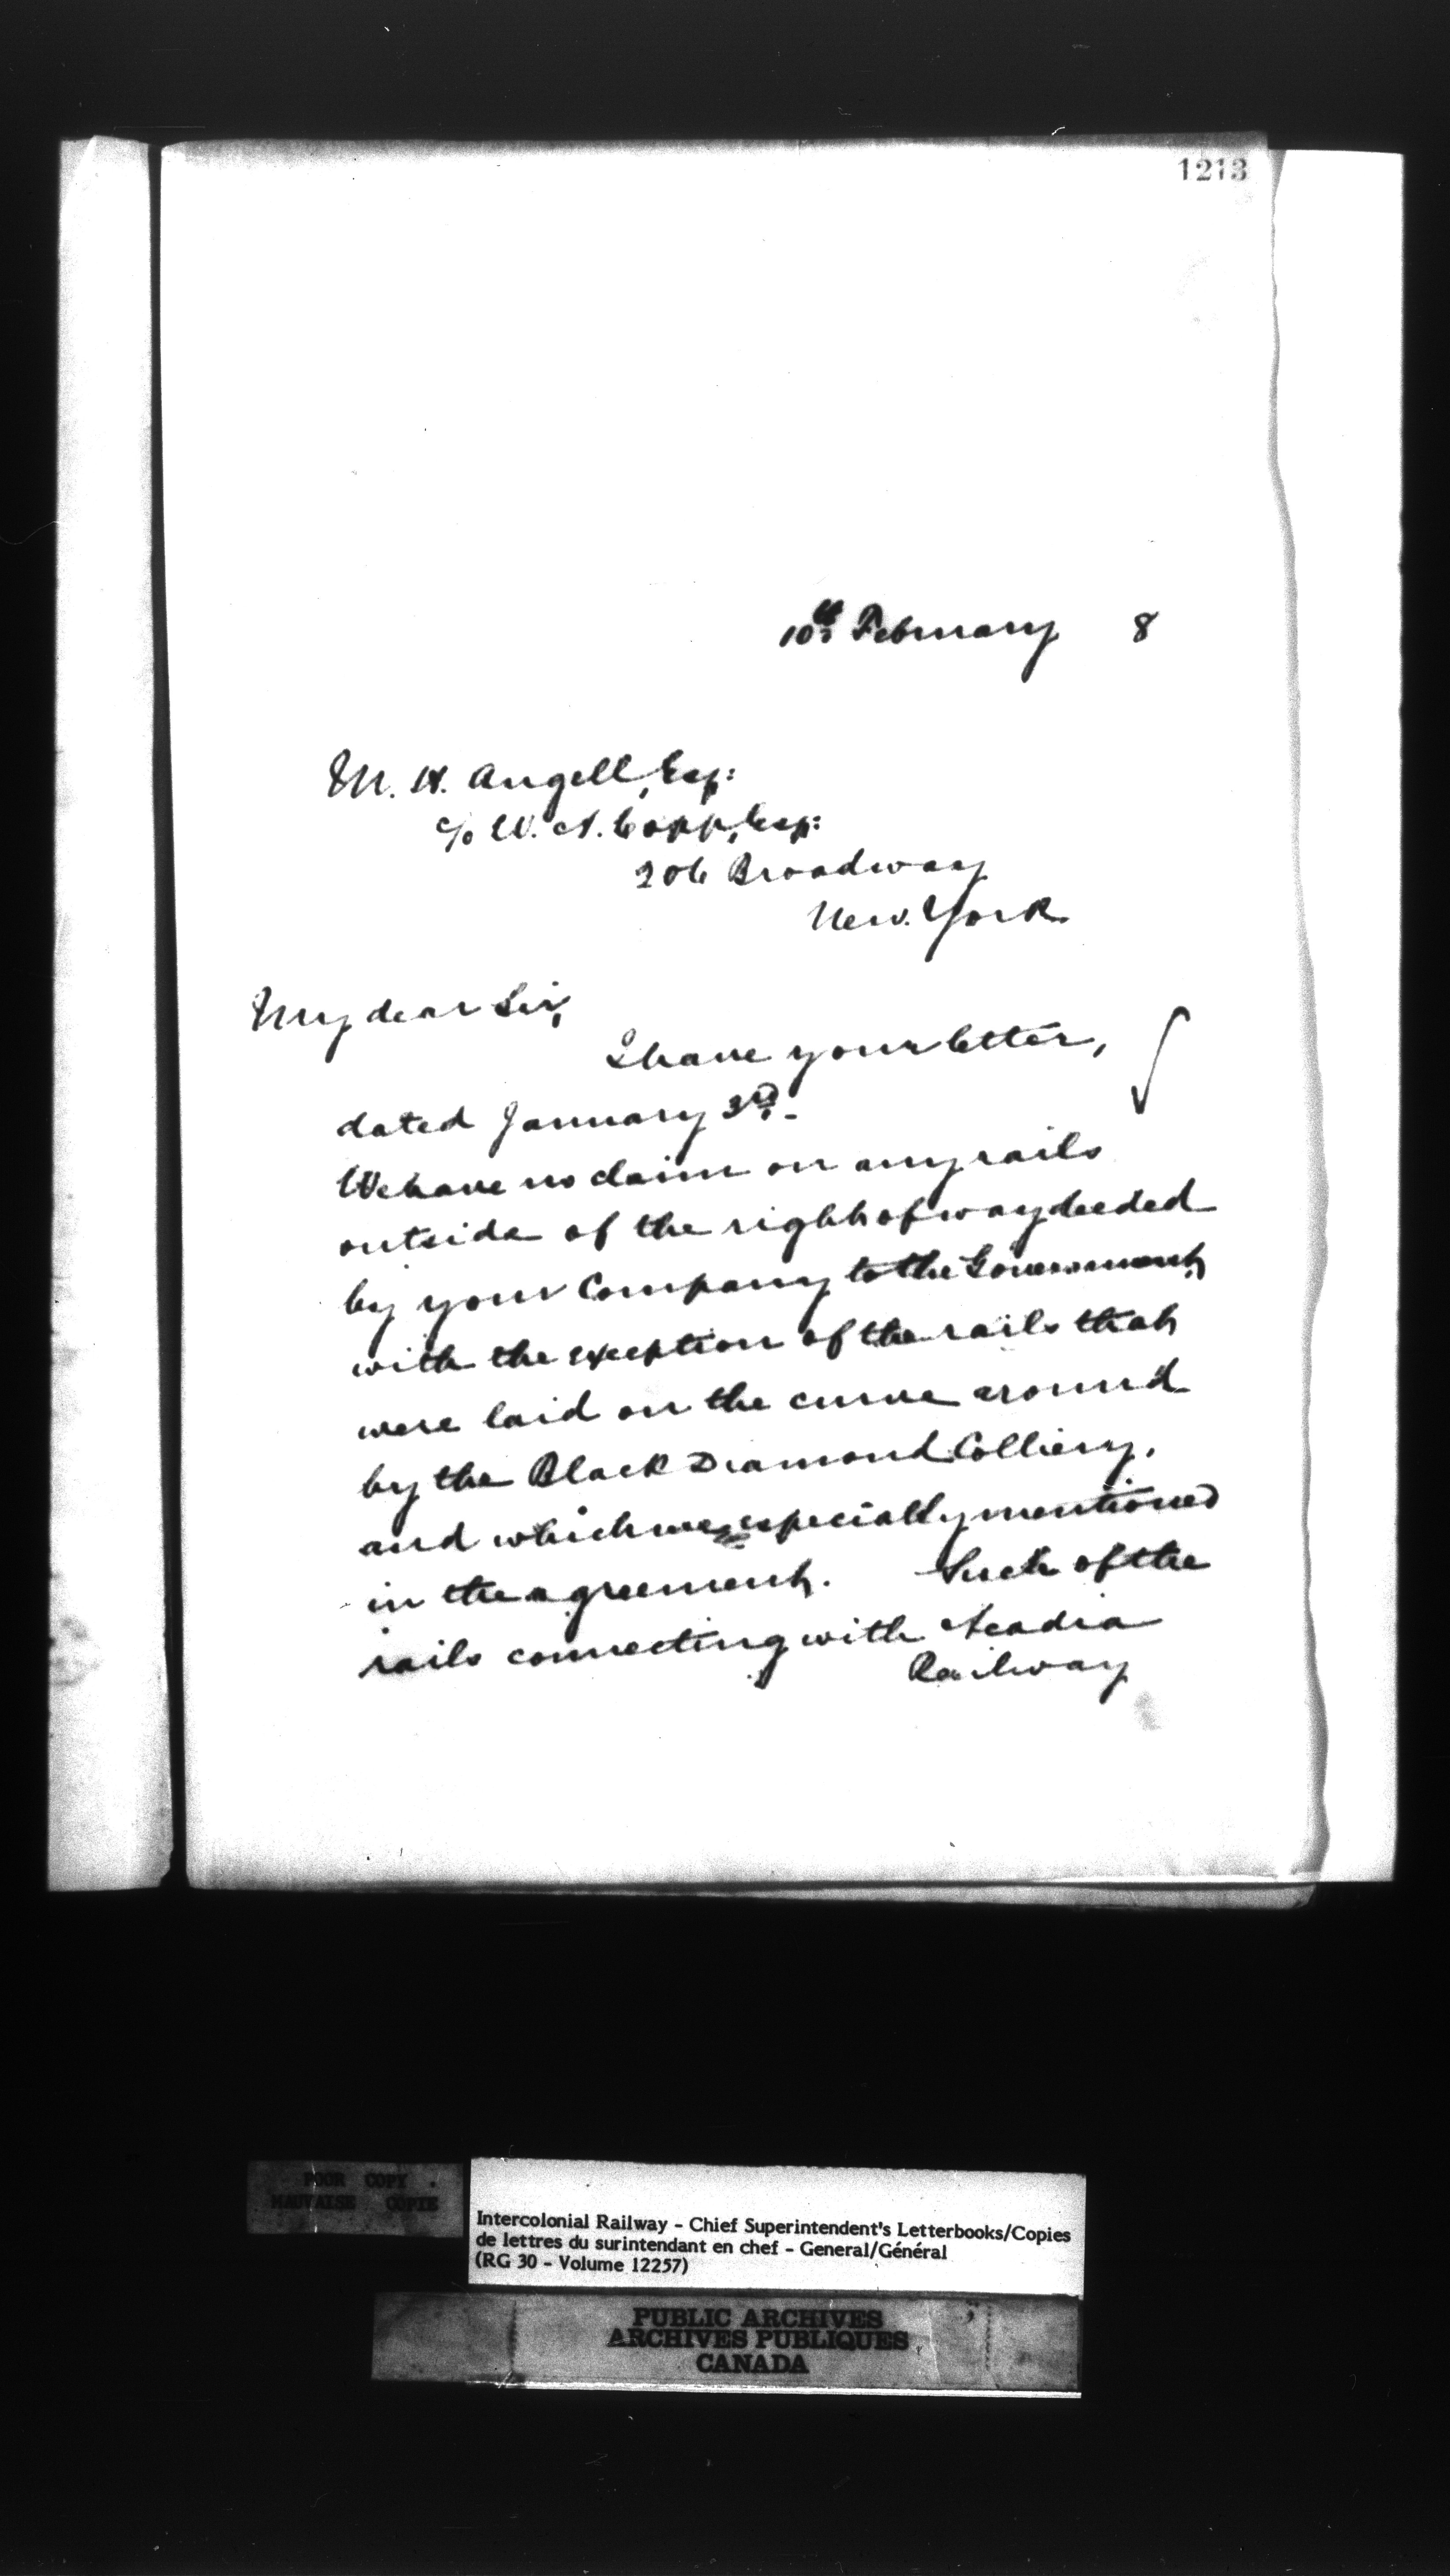 1213
10th February 8
M. H. Angell, Esq:
c/o W. A. Copp, Esq:
206 Broadway
New York
My dear Sir,
I have your letter,
dated January 3rd.-
We have no claim on any rails
outside of the right of way deeded
by your Company to the Government,
with the exception of the rails that
were laid on the curve around
by the Black Diamond Colliery,
and which especially mentioned
in the agreement. Such of the
rails connecting with Acadia
Railway
POOR COPY
MAUVAISE COPIE
Intercolonial Railway - Chief Superintendent's Letterbooks/Copies
de lettres du surintendant en chef - General/Général
(RG 30 - Volume 12257)
PUBLIC ARCHIVES
ARCHIVES PUBLIQUES
CANADA